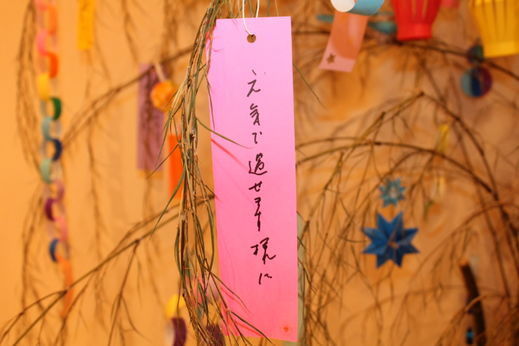 元気で過せます様に